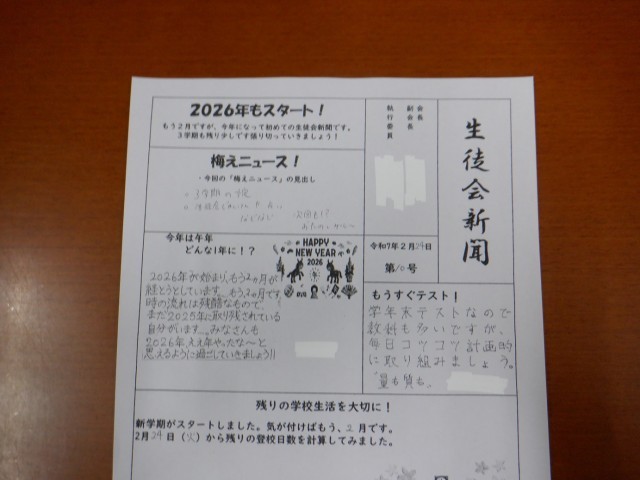 生徒会新聞
会長
副会長
執行委員
令和7年2月24日
第10号
2026年もスタート!
もう2月ですが、今年になって初めての生徒会新聞です。
3学期も残り少しです張り切っていきましょう!
梅えニュース!
・今回の「梅えニュース」の見出し
などなど
今年は午年
どんな1年に!?
HAPPY
NEW YEAR
2026
2026年が始まり、もう2ヵ月が
経とうとしています…もう2ヵ月です
時の流れは残酷なもので、
まだ2025年に取り残されている
自分がいます…みなさんも
2026年、ええ年やったな〜と
思えるように過ごしていきましょう!!
もうすぐテスト!
学年末テストなので
教科も多いですが、
毎日コツコツ計画的
に取り組みましょう。
「量も質も」
残りの学校生活を大切に!
新学期がスタートしました。気が付けばもう、2月です。
2月24日(火)から残りの登校日数を計算してみました。